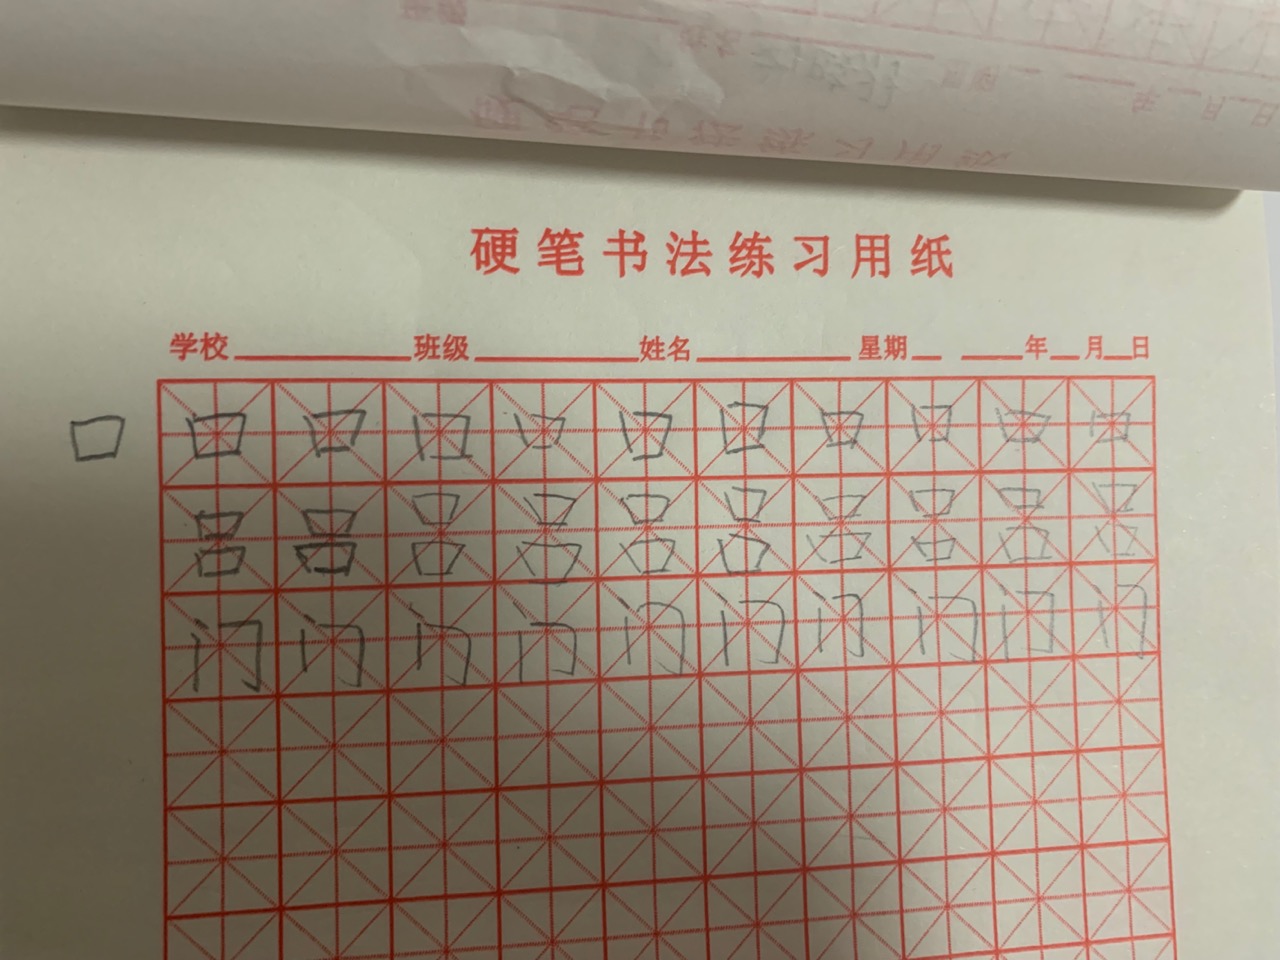 硬笔书法练习用纸
学校 班级 姓名 星期 年 月 日
口 口 口 口 口 口 口 口 口 口 口
吕 吕 吕 吕 吕 吕 吕 吕 吕 吕
门 门 门 门 门 门 门 门 门 门